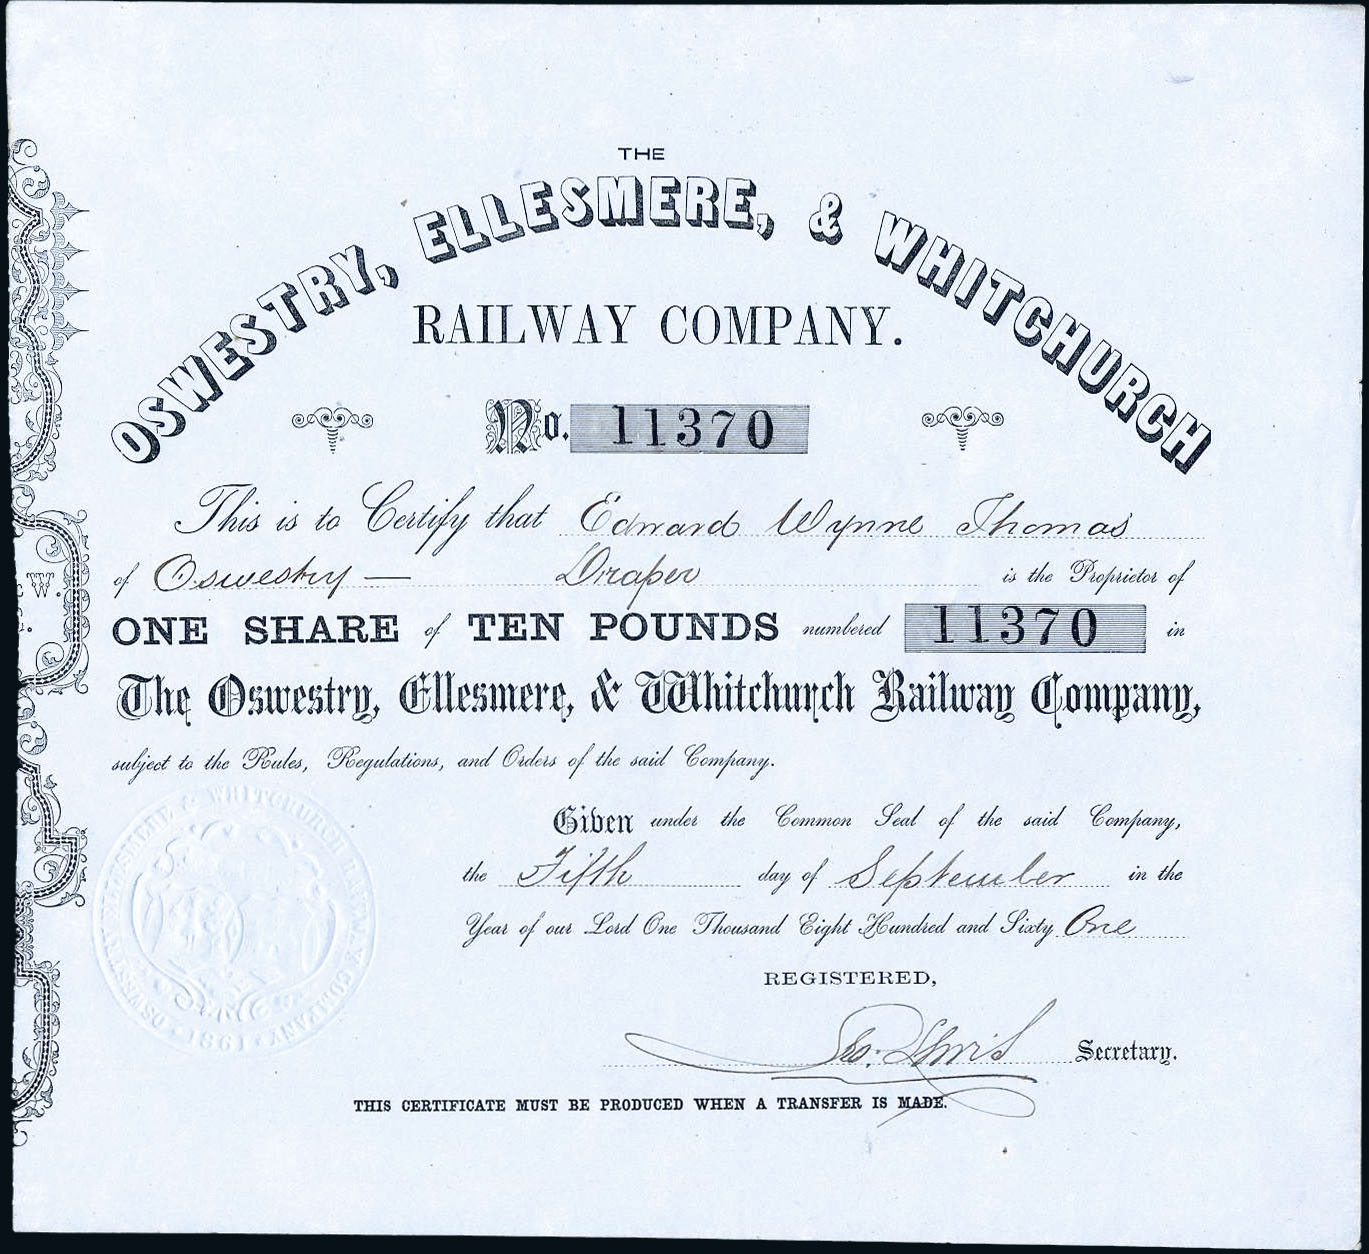 THE
OSWESTRY, ELLESMERE, & WHITCHURCH
RAILWAY COMPANY.
No. 11370
This is to Certify that Edward Wynne Thomas
of Oswestry — Draper is the Proprietor of
ONE SHARE of TEN POUNDS numbered 11370 in
The Oswestry, Ellesmere, & Whitchurch Railway Company,
subject to the Rules, Regulations, and Orders of the said Company.
Given under the Common Seal of the said Company,
the Fifth day of September in the
Year of our Lord One Thousand Eight Hundred and Sixty One
REGISTERED,
Geo. Lewis Secretary.
THIS CERTIFICATE MUST BE PRODUCED WHEN A TRANSFER IS MADE.
W.
OSWESTRY ELLESMERE & WHITCHURCH RAILWAY COMPANY
1861